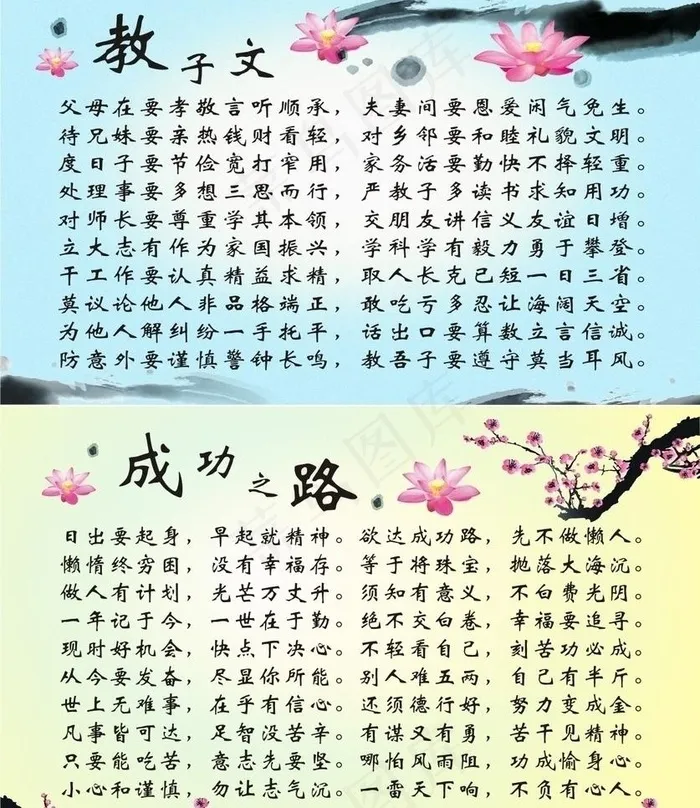 教子文
父母在要孝敬言听顺承，夫妻间要恩爱闲气免生。
待兄妹要亲热钱财看轻，对乡邻要和睦礼貌文明。
度日子要节俭宽打窄用，家务活要勤快不择轻重。
处理事要多想三思而行，严教子多读书求知用功。
对师长要尊重学其本领，交朋友讲信义友谊日增。
立大志有作为家国振兴，学科学有毅力勇于攀登。
干工作要认真精益求精，取人长克己短一日三省。
莫议论他人非品格端正，敢吃亏多忍让海阔天空。
为他人解纠纷一手托平，话出口要算数立言信诚。
防意外要谨慎警钟长鸣，教吾子要遵守莫当耳风。
成功之路
日出要起身，早起就精神。欲达成功路，先不做懒人。
懒惰终穷困，没有幸福存。等于将珠宝，抛落大海沉。
做人有计划，光芒万丈升。须知有意义，不白费光阴。
一年记于今，一世在于勤。绝不交白卷，幸福要追寻。
现时好机会，快点下决心。不轻看自己，刻苦功必成。
从今要发奋，尽显你所能。别人难五两，自己有半斤。
世上无难事，在乎有信心。还须德行好，努力变成金。
凡事皆可达，足智没苦辛。有谋又有勇，苦干见精神。
只要能吃苦，意志先要坚。哪怕风雨阻，功成愉身心。
小心和谨慎，勿让志气沉。一雷天下响，不负有心人。